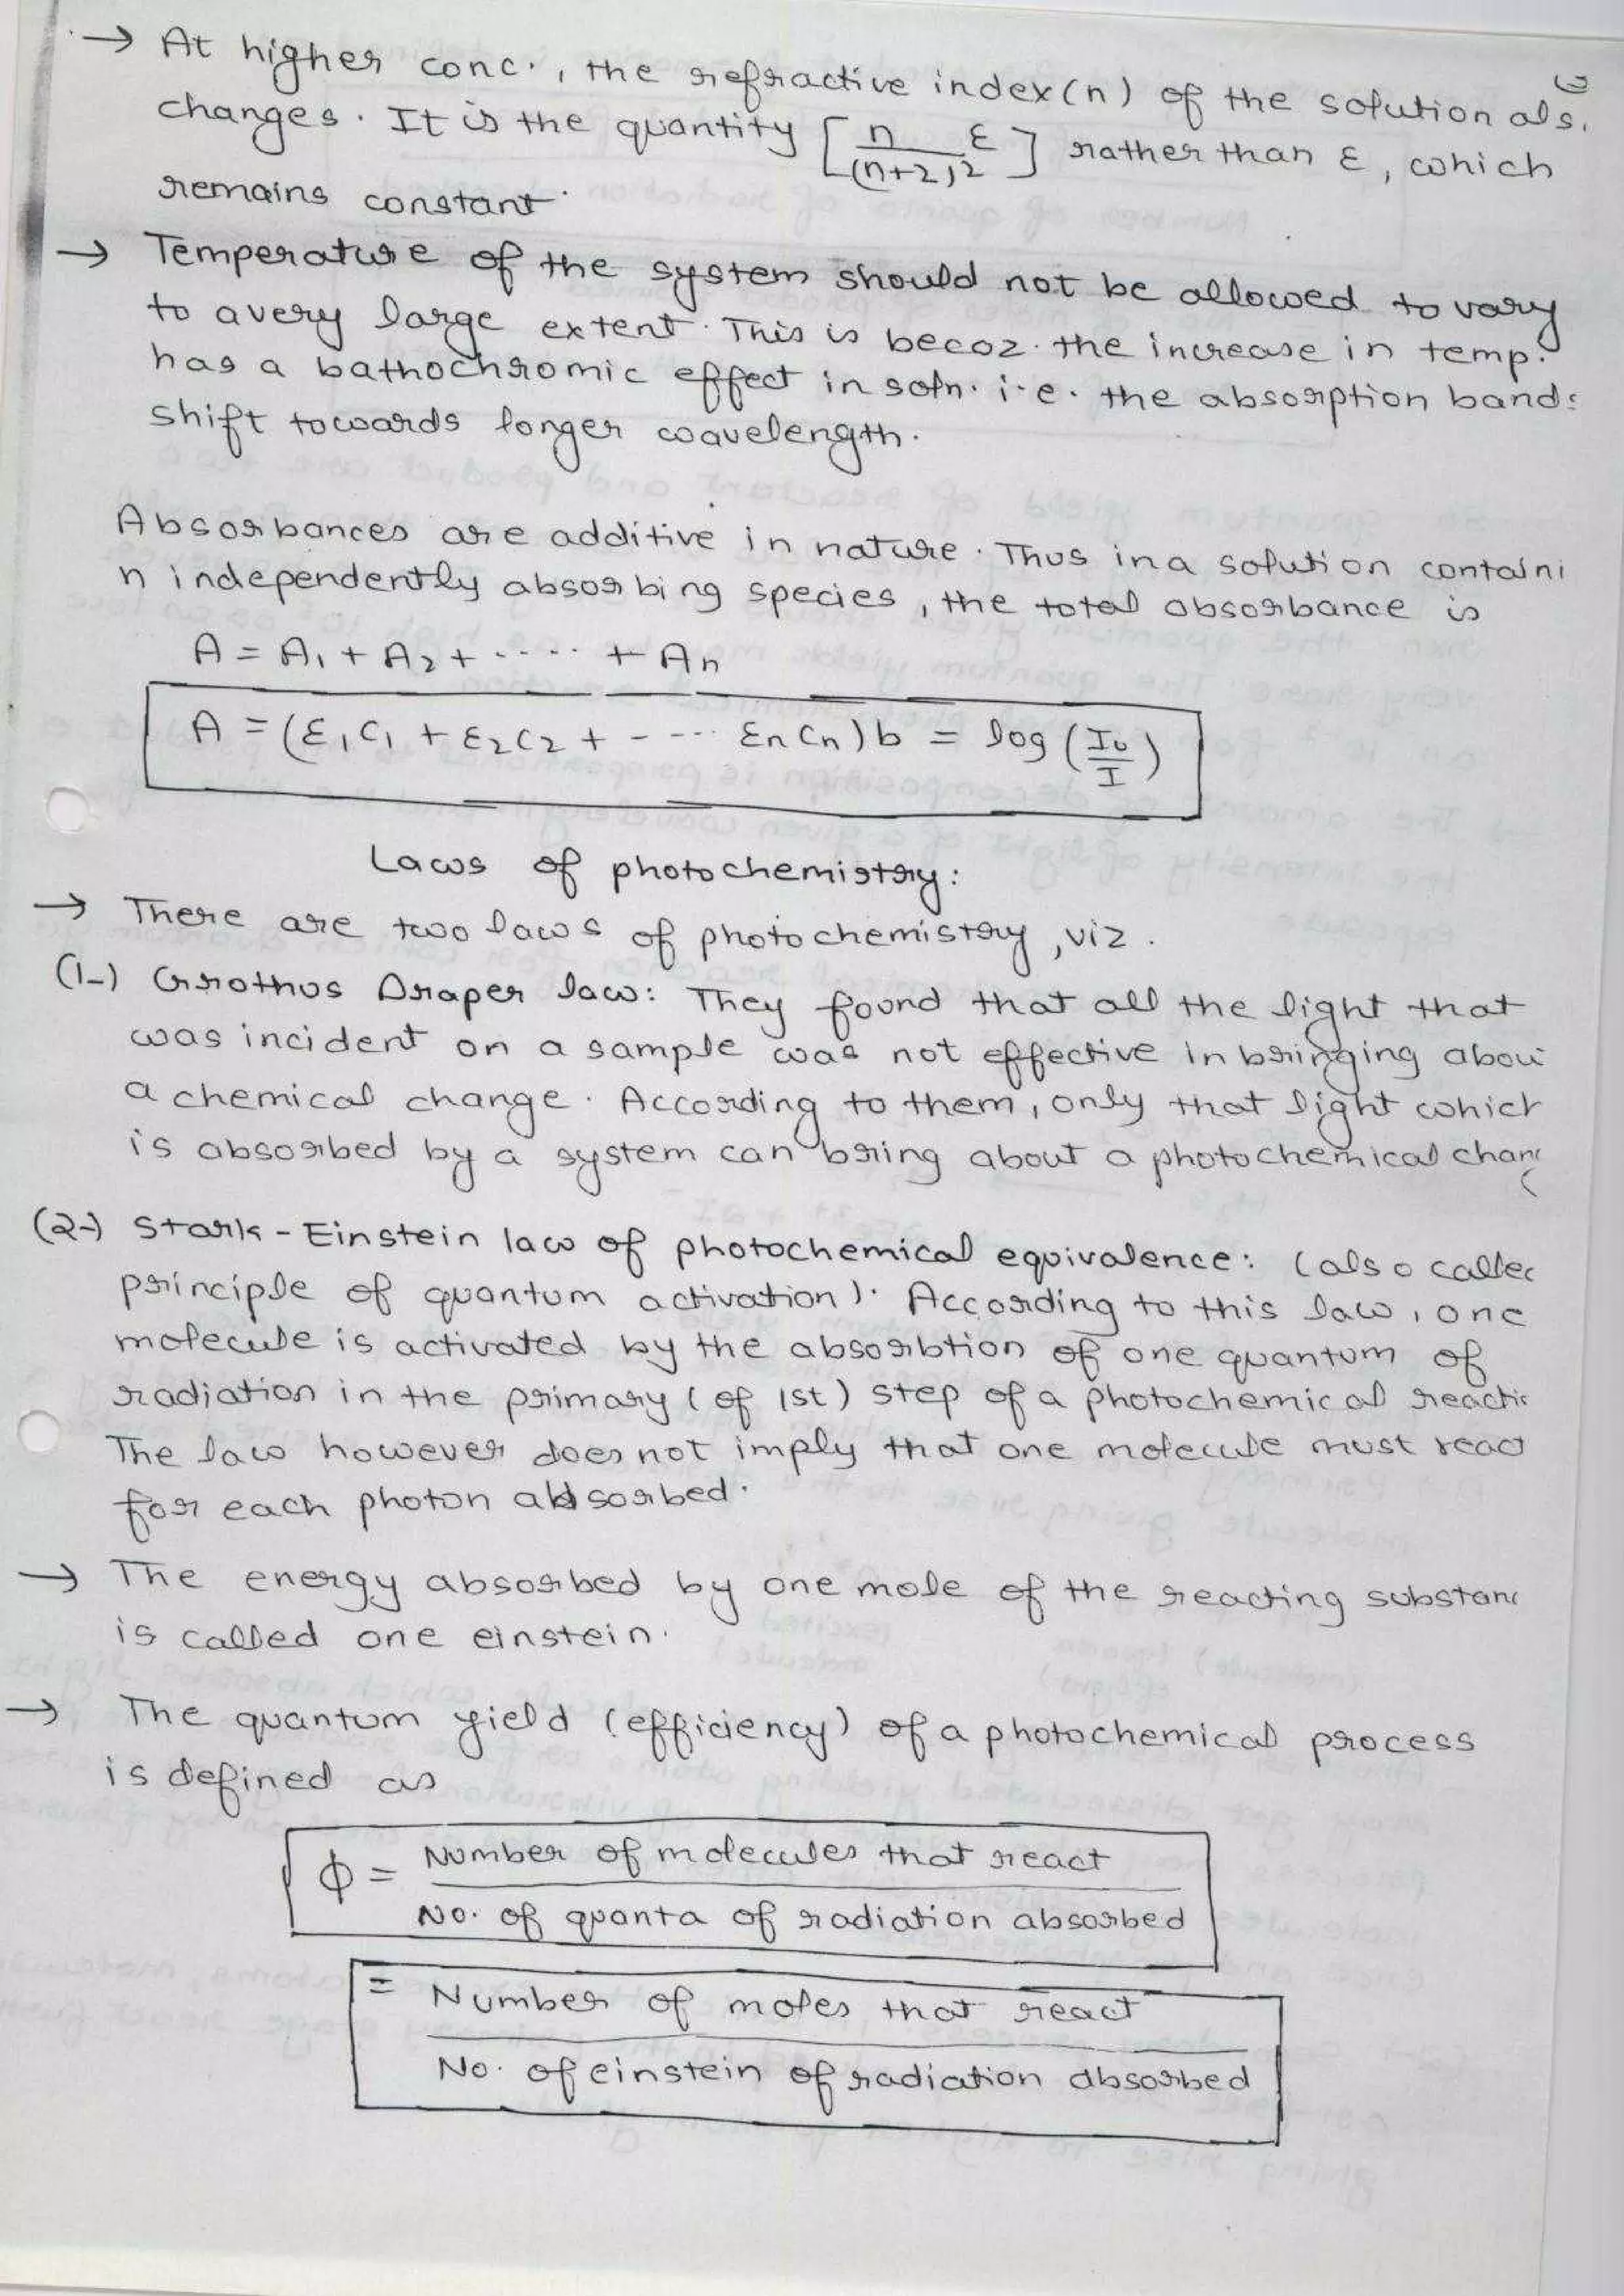 → At higher conc., the refractive index(n) of the solution als
changes. It is the quantity [n ε / (n+2)²] rather than ε, which
remains constant.
→ Temperature of the system should not be allowed to vary
to a very large extent. This is becoz. the increase in temp.
has a bathochromic effect in soln. i.e. the absorption bands
shift towards longer wavelength.
Absorbances are additive in nature. Thus in a solution containi
n independently absorbing species, the total absorbance is
A = A₁ + A₂ + ..... + An
A = (ε₁C₁ + ε₂C₂ + - --- εnCn)b = log (I₀/I)
Laws of photochemistry:
→ There are two laws of photochemistry, viz.
(1-) Grrothus Draper law: They found that all the light that
was incident on a sample was not effective in bringing abou
a chemical change. According to them, only that light which
is absorbed by a system can bring about a photochemical chang
(2-) Stark-Einstein law of photochemical equivalence: (also callec
principle of quantum activation). According to this law, one
molecule is activated by the absorbtion of one quantum of
radiation in the primary (of 1st) step of a photochemical reactio
The law however does not imply that one molecule must react
for each photon absorbed.
→ The energy absorbed by one mole of the reacting substanc
is called one einstein.
→ The quantum yield (efficiency) of a photochemical process
is defined as
ϕ = Number of molecules that react
No. of quanta of radiation absorbed
= Number of moles that react
No. of einstein of radiation absorbed